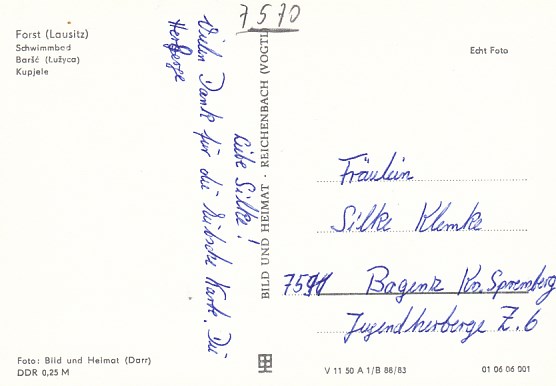 7570
Forst (Lausitz)
Schwimmbad
Baršć (Łužyca)
Kupjele
Echt Foto
Liebe Silke!
Vielen Dank für die hübsche Karte. Die
Herberge
BILD UND HEIMAT · REICHENBACH (VOGTL
Fräulein
Silke Klemke
7591 Bagenz Kr. Spremberg
Jugendherberge Z. 6
Foto: Bild und Heimat (Darr)
DDR 0,25 M
V 11 50 A 1/B 86/83
01 06 06 001